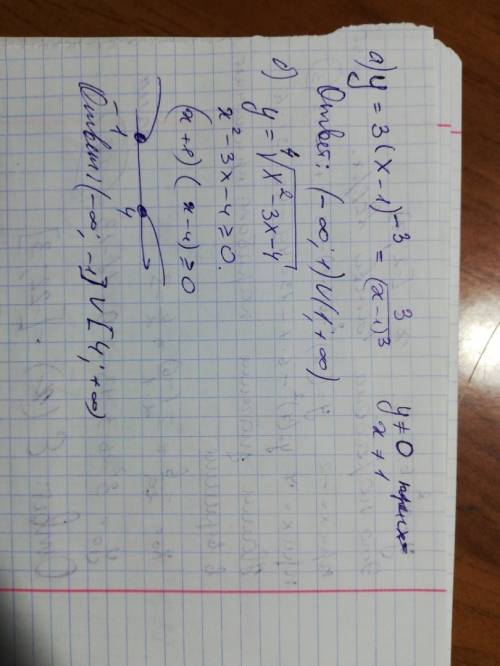 а) y = 3(x-1)⁻³ = 3/(x-1)³ y≠0 при x=
x≠1
Ответ: (-∞; 1)∪(1; +∞)
б) y = ⁴√(x²-3x-4)
x²-3x-4≥0.
(x+1)(x-4)≥0
-1 4
Ответ: (-∞; -1]∪[4; +∞)